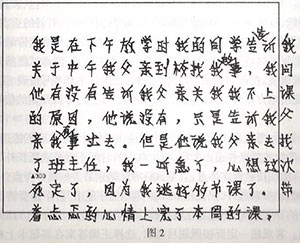 我是在下午放学时我的同学告诉我
关于中午我父亲到校找我的事，我问
他有没有告诉我父亲关我我不上课
的原因，他说没有，只是告诉我父
亲我的事出去。但是他说我父亲找
了班主任，我一听急了，心想过次
死定了，因为我逃好的节课了。带
着忐忑的心情上完了本周的课，
图2